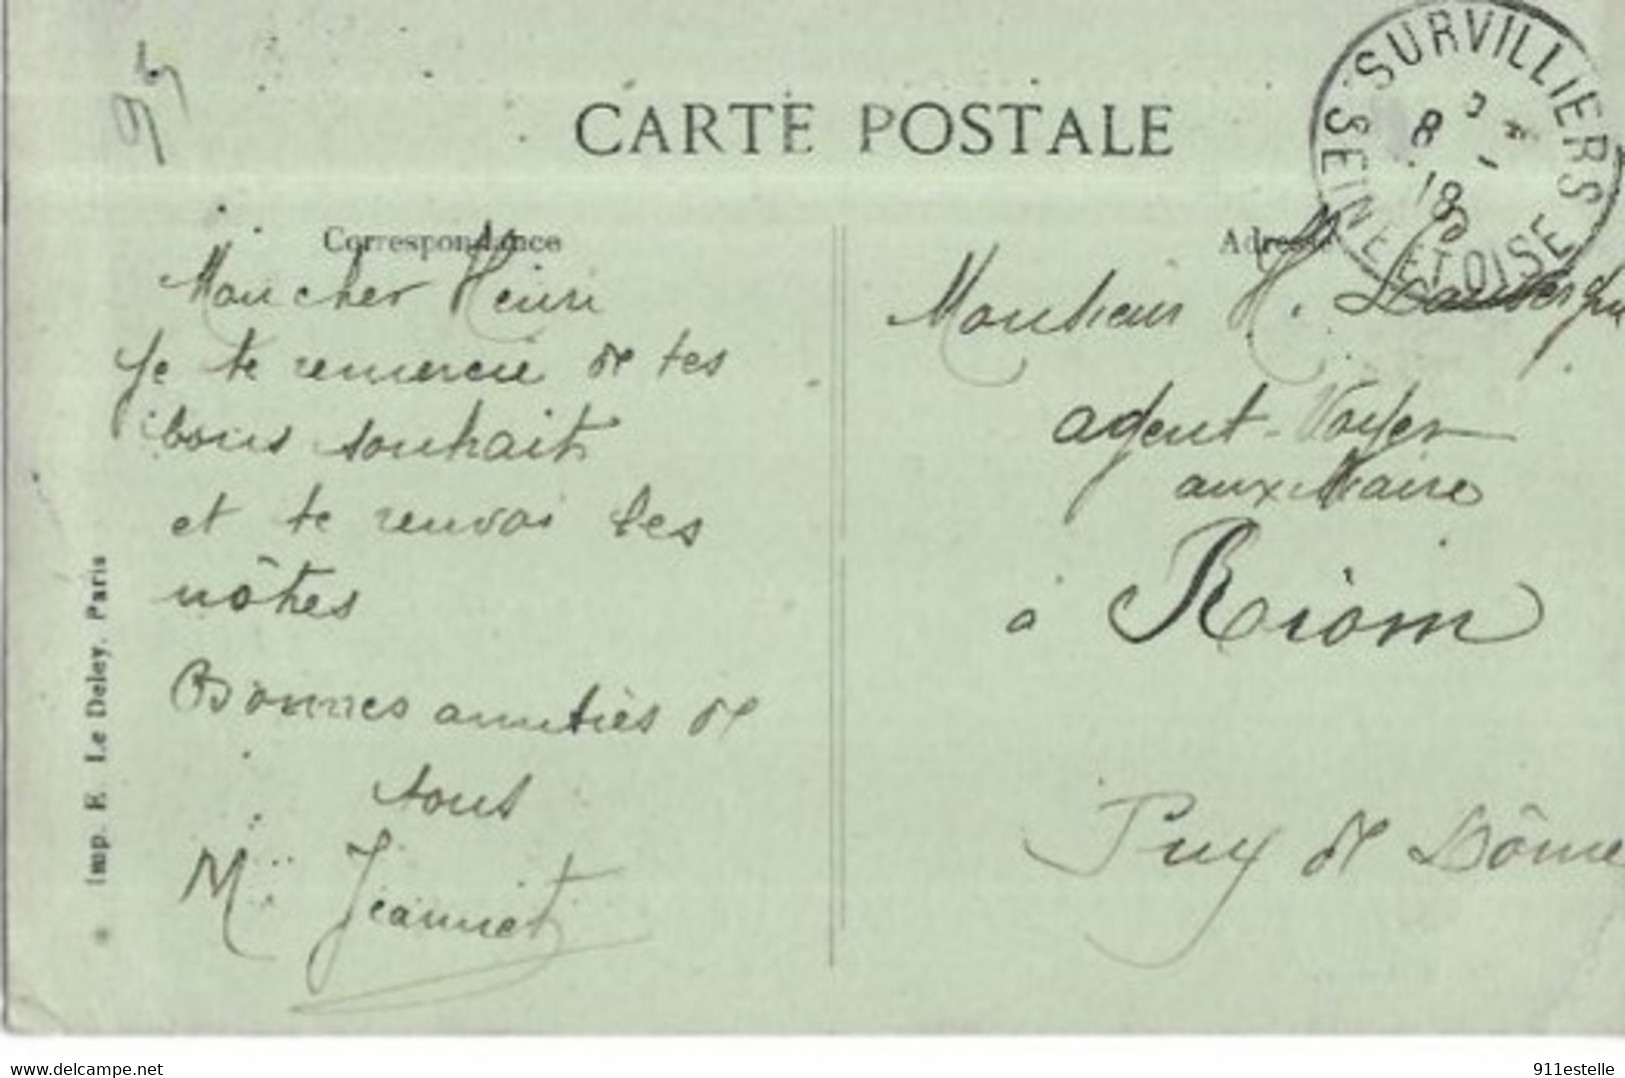 95
CARTE POSTALE
SURVILLIERS
SEINE ET OISE
8
18
Correspondance
Adresse
Mon cher Henri
Je te remercie de tes
bons souhaits
et te renvoi les
nôtres
Bonnes amitiés de
tous
M Jeannet
Monsieur H.
agent-Voyer
auxiliaire
à Riom
Puy de Dôme
Imp. E. Le Deley, Paris
www.delcampe.net
911estelle